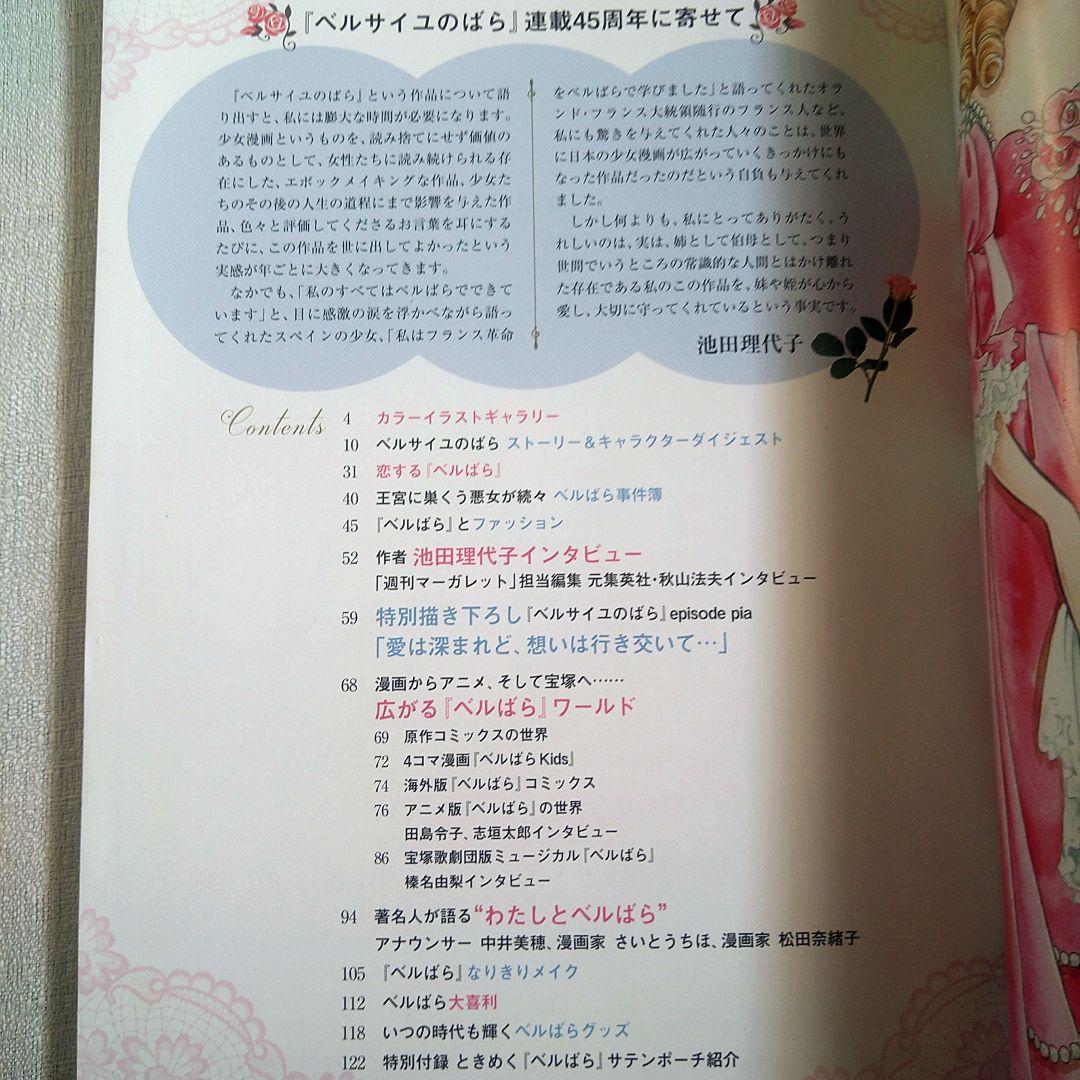 『ベルサイユのばら』連載45周年に寄せて
『ベルサイユのばら』という作品について語
り出すと、私には膨大な時間が必要になります。
少女漫画というものを、読み捨てにせず価値の
あるものとして、女性たちに読み続けられる存
在にした、エポックメイキングな作品、少女た
ちのその後の人生の道程にまで影響を与えた作
品、色々と評価してくださるお言葉を耳にする
たびに、この作品を世に出してよかったという
実感が年ごとに大きくなってきます。
なかでも、「私のすべてはベルばらでできて
います」と、目に感激の涙を浮かべながら語っ
てくれたスペインの少女、「私はフランス革命
をベルばらで学びました」と語ってくれたオラ
ンド・フランス大統領随行のフランス人など、
私にも驚きを与えてくれた人々のことは、世界
に日本の少女漫画が広がっていくきっかけにも
なった作品だったのだという自負も与えてくれ
ました。
しかし何よりも、私にとってありがたく、う
れしいのは、実は、姉として伯母として、つまり
世間でいうところの常識的な人間とはかけ離れ
た存在である私のこの作品を、妹や姪が心から
愛し、大切に守ってくれているという事実です。
池田理代子
Contents
4 カラーイラストギャラリー
10 ベルサイユのばら ストーリー＆キャラクターダイジェスト
31 恋する『ベルばら』
40 王宮に巣くう悪女が続々 ベルばら事件簿
45 『ベルばら』とファッション
52 作者 池田理代子インタビュー
「週刊マーガレット」担当編集 元集英社・秋山法夫インタビュー
59 特別描き下ろし『ベルサイユのばら』episode pia
「愛は深まれど、想いは行き交いて…」
68 漫画からアニメ、そして宝塚へ……
広がる『ベルばら』ワールド
69 原作コミックスの世界
72 4コマ漫画『ベルばらKids』
74 海外版『ベルばら』コミックス
76 アニメ版『ベルばら』の世界
田島令子、志垣太郎インタビュー
86 宝塚歌劇団版ミュージカル『ベルばら』
榛名由梨インタビュー
94 著名人が語る“わたしとベルばら”
アナウンサー 中井美穂、漫画家 さいとうちほ、漫画家 松田奈緒子
105 『ベルばら』なりきりメイク
112 ベルばら大喜利
118 いつの時代も輝くベルばらグッズ
122 特別付録 ときめく『ベルばら』サテンポーチ紹介